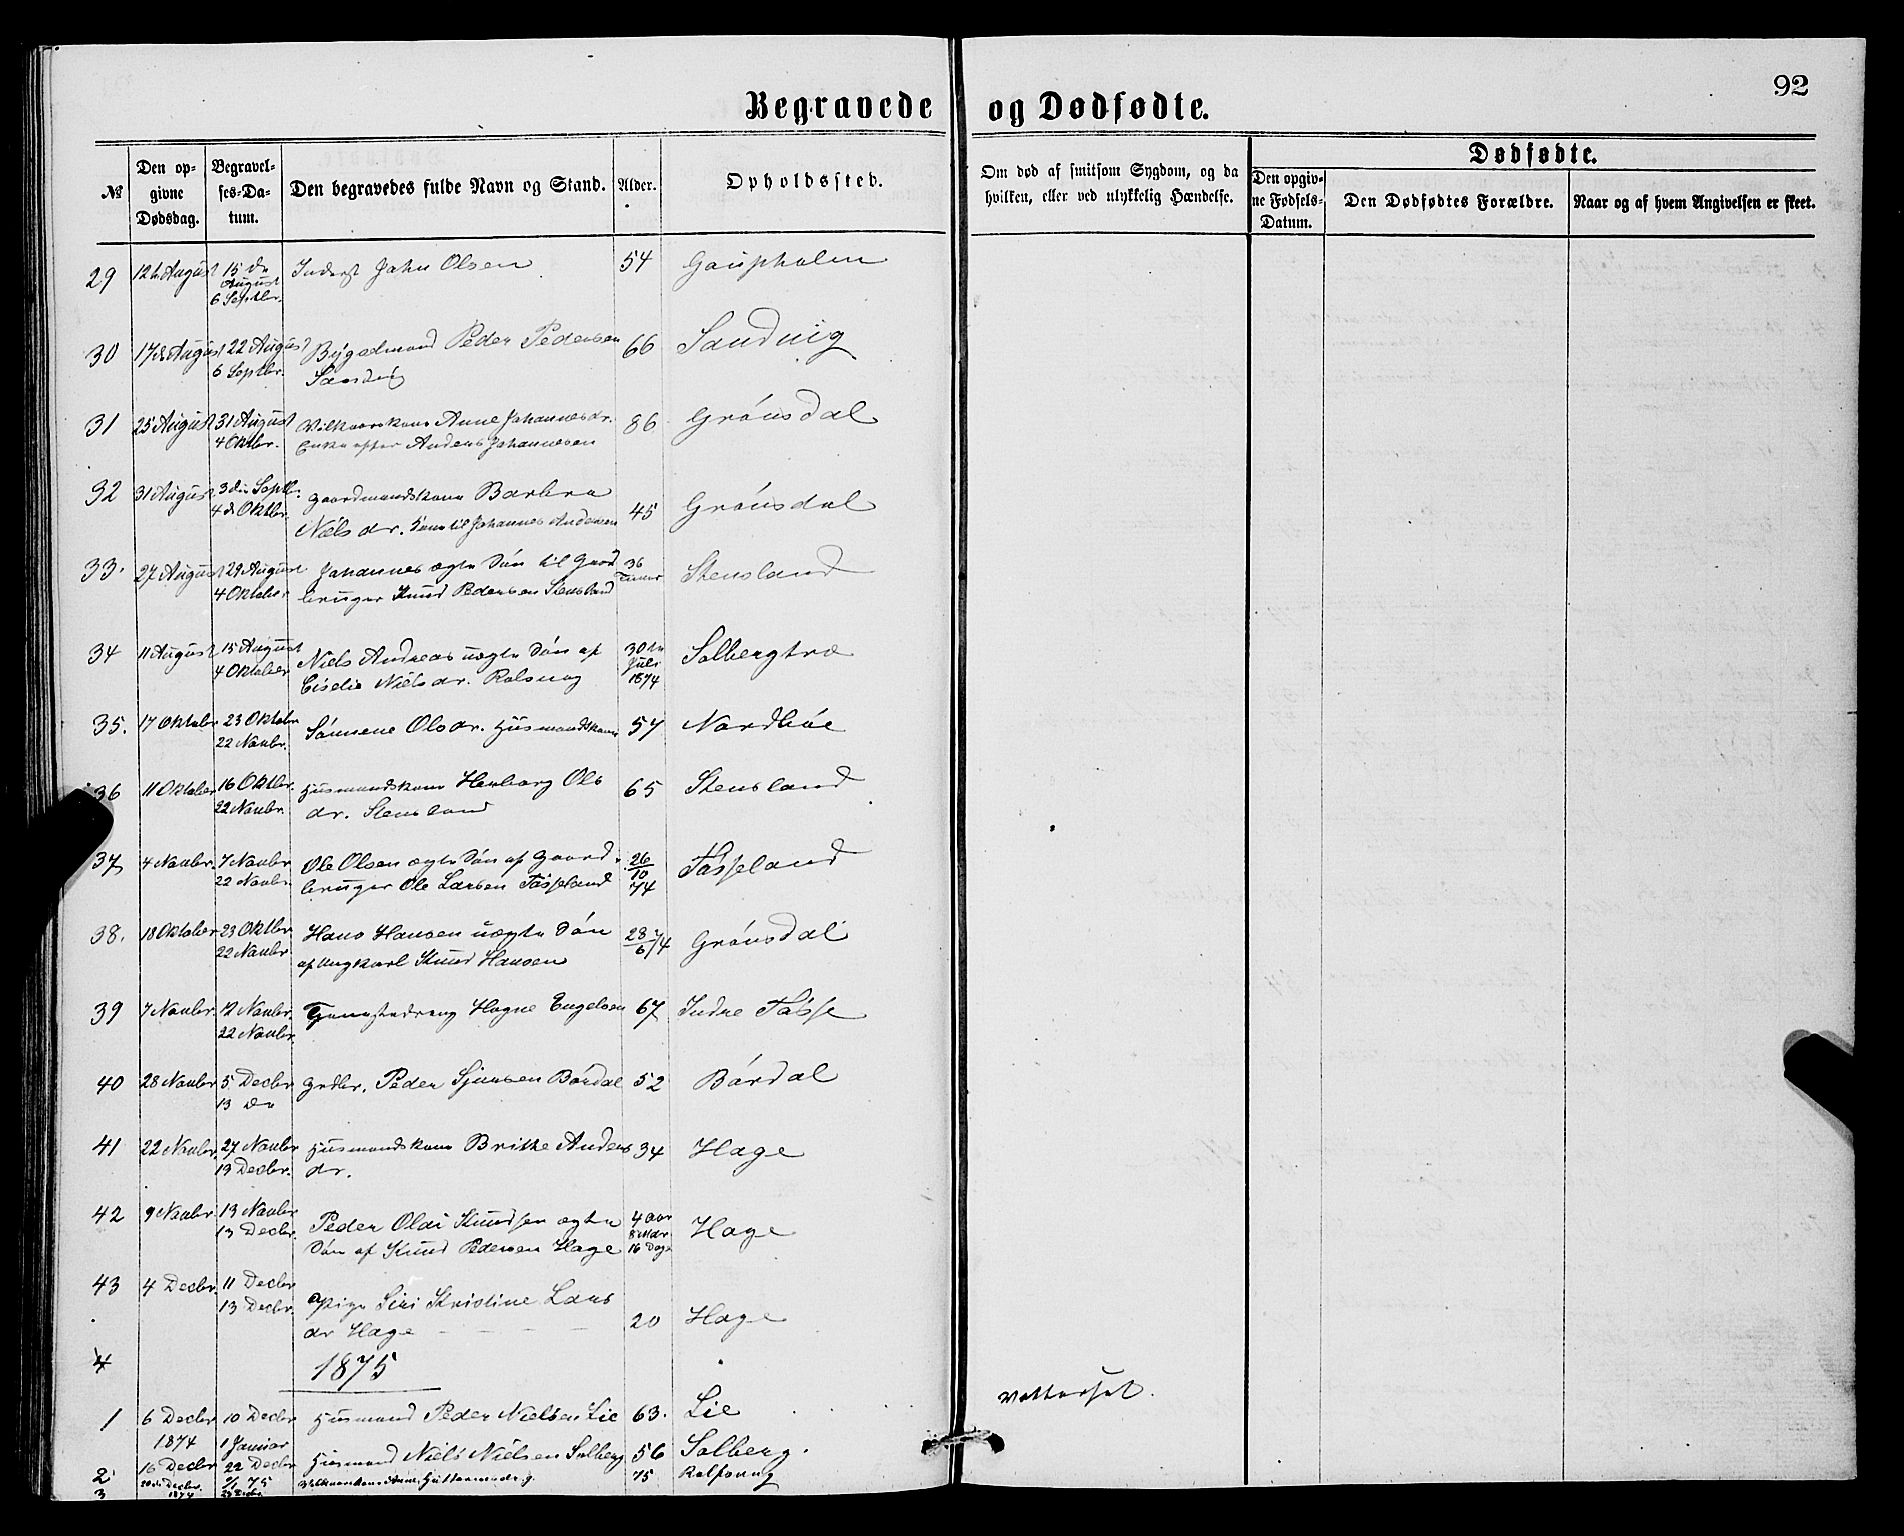 92
Begravede og Dødfødte.
№ Den opgivne Dødsdag. Begravelses-Datum. Den begravedes fulde Navn og Stand. Alder. Opholdssted. Om død af smitsom Sygdom, og da hvilken, eller ved ulykkelig Hændelse. Dødfødte. Den opgivne Fødsels-Datum. Den Dødfødtes Forældre. Naar og af hvem Angivelsen er skeet.
29 12te August 15 de August 6 Septbr. Inderst John Olsen 54 Gaupholm
30 17de August 22 August 6 Septbr. Bygdmand Peder Pedersen Sandvig 66 Sandvig
31 25 August 31 August 4 Oktbr. Vilkaarskone Anne Johannesdr. Enke efter Anders Johannesen 86 Grønsdal
32 31 August 3die Septbr. 4de Oktbr. Gaardmandskone Barbra Nielsdr. Kone til Johannes Andersen 45 Grønsdal
33. 27 August 29 August 4 Oktober Johannes ægte Søn til Gaardbruger Knud Pedersen Stensland 36 Timer Stensland
34 11 August 15 August 4 Oktober Niels Andreas uægte Søn af Ciselie Nielsdr. Rolsvaag 30te Juli 1874 Solbergtræ
35. 17 Oktober 23 Oktober 22 Novbr. Sønnene Olsdr. Husmandskone 57 Nordbøe
36 11 Oktober 16 Oktbr. 22 Novbr. Husmandskone Herborg Olsdr. Stensland 65 Stensland
37 4 Novbr. 7 Novbr. 22 Novbr. Ole Olsen ægte Søn af Gaardbruger Ole Larsen Tøsseland 26/10 74 Tøsseland
38. 18 Oktober 23 Oktbr. 22 Novbr. Hans Hansen uægte Søn af Ungkarl Knud Hansen 28/6 74 Grønsdal
39 7 Novbr. 12 Novbr. 22 Novbr. Tjenestedreng Hagne Engelsen 67 Indre Tøsse
40 28 Novbr 5 Decbr 13 De Grdbr. Peder Sjursen Børdal 52 Børdal
41 22 Novbr. 27 Novbr 13 Decbr. Husmandskone Brithe Andersdr. 34 Hage
42 9 Novbr. 13 Novbr 13 Decbr. Peder Olai Knudsen ægte Søn af Knud Pedersen Hage 4 Aar 8 Mdr 16 Dage Hage
43 4 Decbr. 11 Decbr 13 Decbr. Pige Siri Kristine Larsdr Hage 20 Hage
4
1875
1 6 Decbr 1874 10 Decbr 1 Januar Husmand Peder Nielsen Lie 63. Lie
2 16 Decbr 22 Decbr 1/1 75 Husmand Niels Nielsen Solberg 56 Solberg.
3 20de Decbr. 1874 Vilkaarskone Anne Guttormsdr. 75